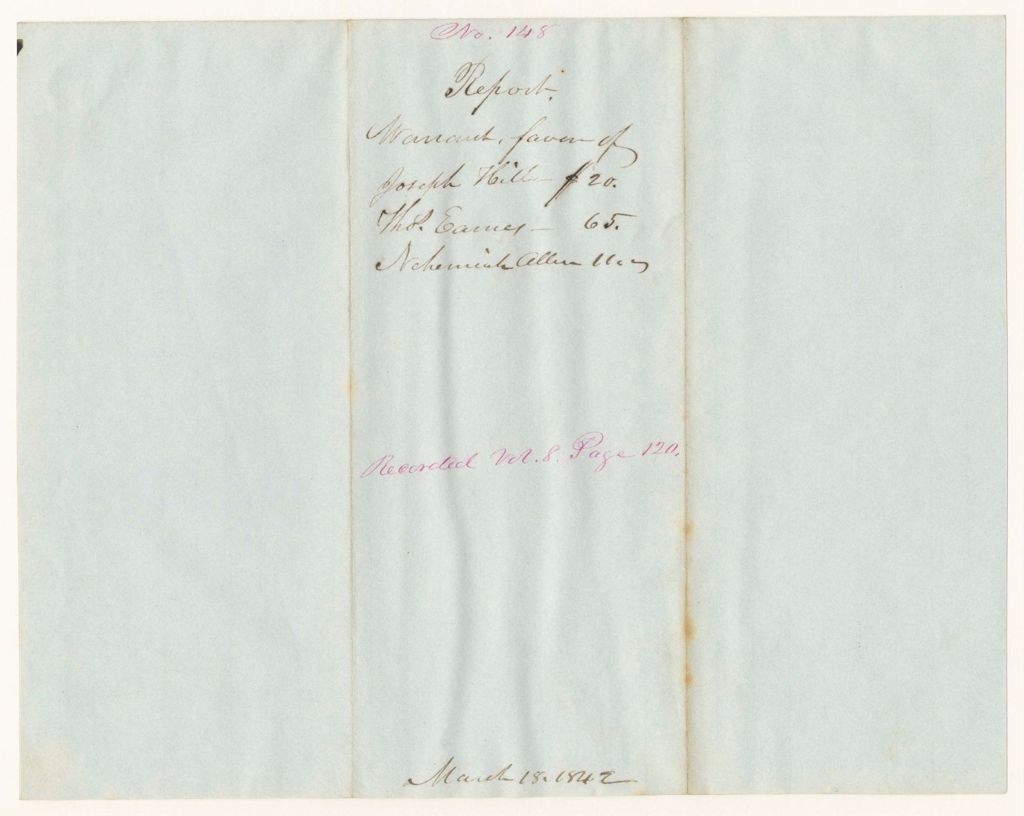 No. 148
Report.
Warrant, favor of
Joseph Hill — $20.
Thos. Eames — 65.
Nehemiah Allen
Recorded Vol. 8. Page 120.
March 18. 1842